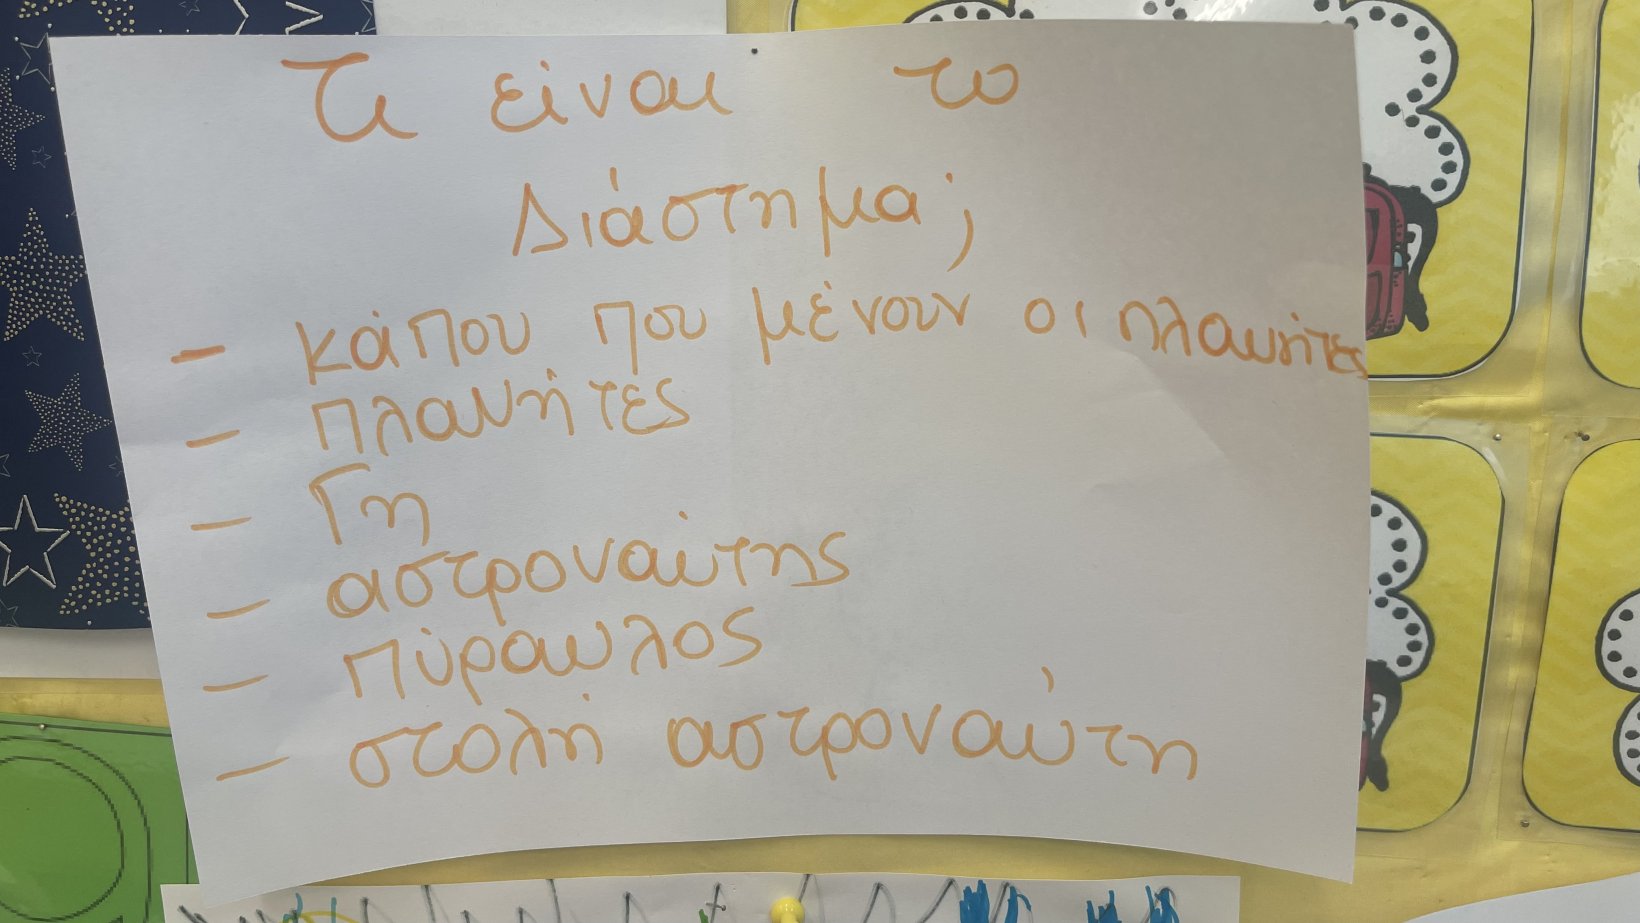 Τι είναι το
Διάστημα;
- κάπου που μένουν οι πλανήτες
- πλανήτες
- Γη
- αστροναύτης
- πύραυλος
- στολή αστροναύτη